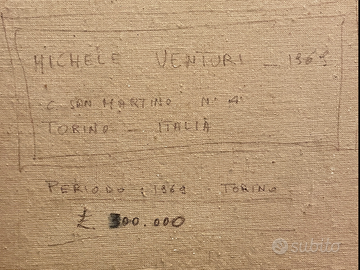 MICHELE VENTURI - 1969
C. SAN MARTINO N. 4
TORINO - ITALIA
PERIODO : 1969 TORINO
£ 300.000
subito